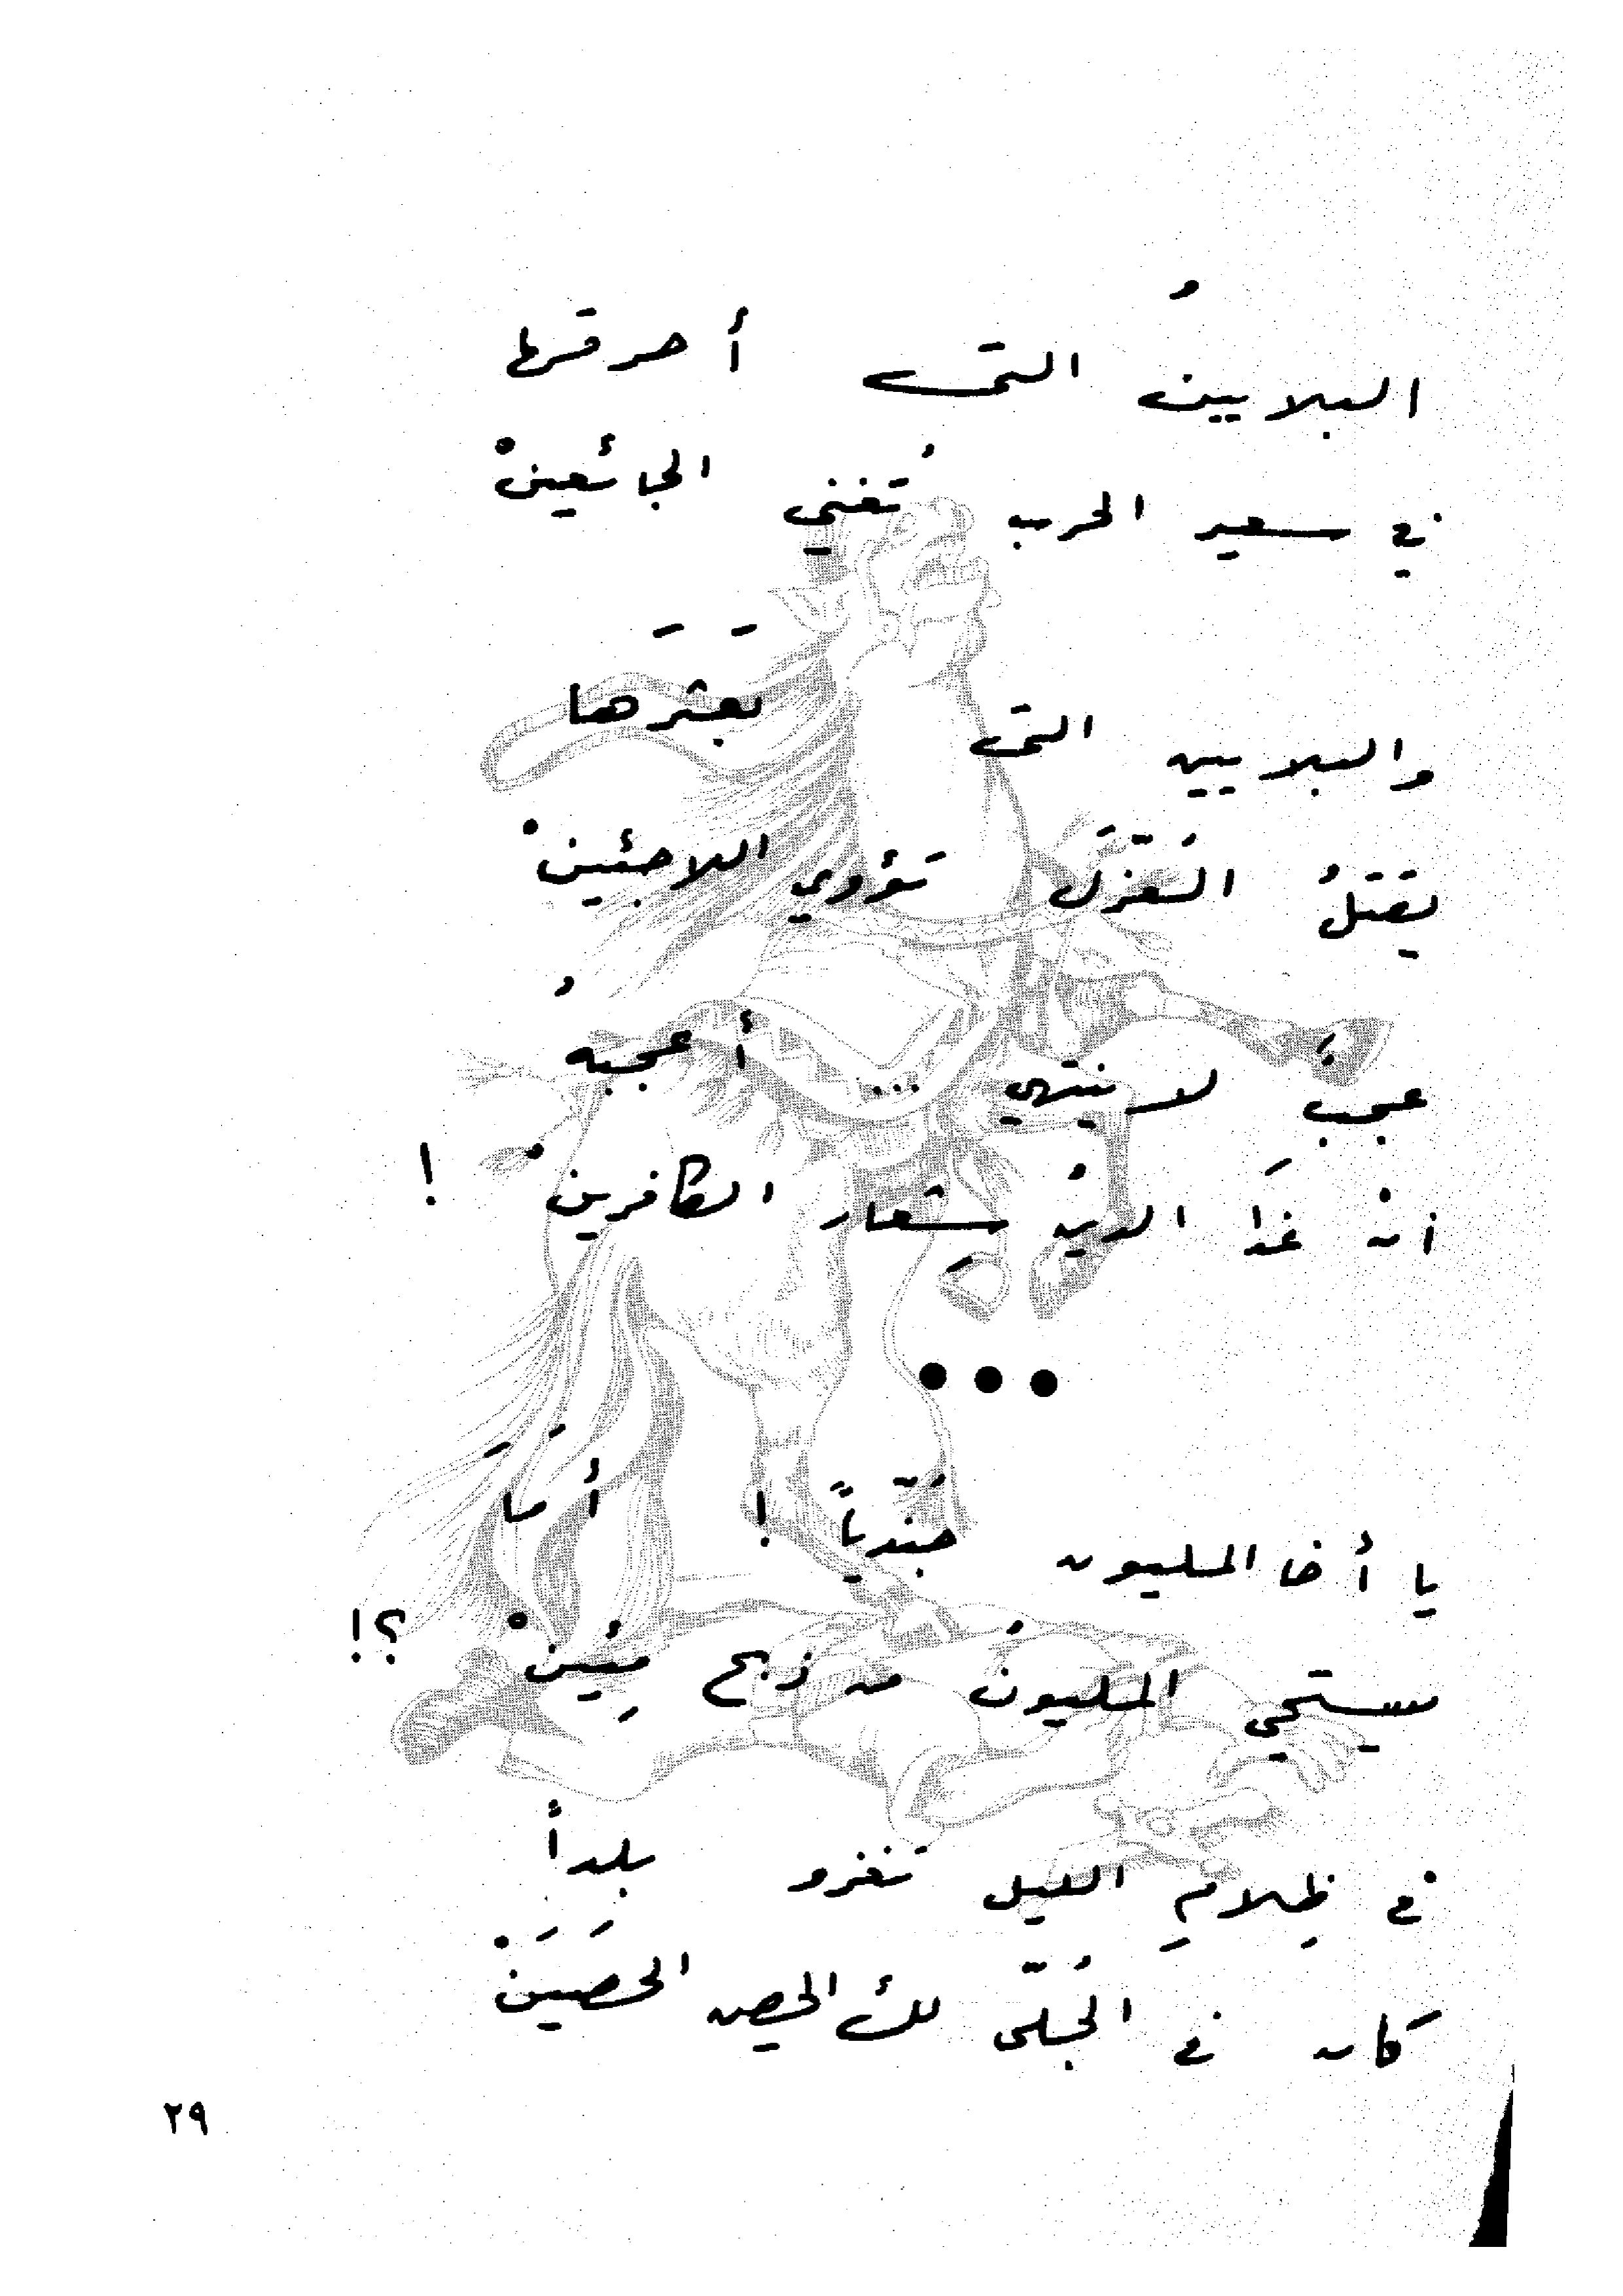 البلايينُ التي أحرقتها
في سعير الحرب تُغني الجائعينْ
والبلايين التي بعثرتها
يقتلُ العُزَّلَ تؤوي اللاجئينْ
عجبٌ لا ينتهي ... أعجبهُ
ان غَدا الدينُ شِعار الكافرينْ !
•••
يا أخا المليون جُنّدياً ! أمَا
يستحي المليونُ من ذبح مِئينْ ؟!
في ظِلامِ الليل تغزو بلدأ
كان في الجُلّى لك الحصن الحَصَينْ
٢٩